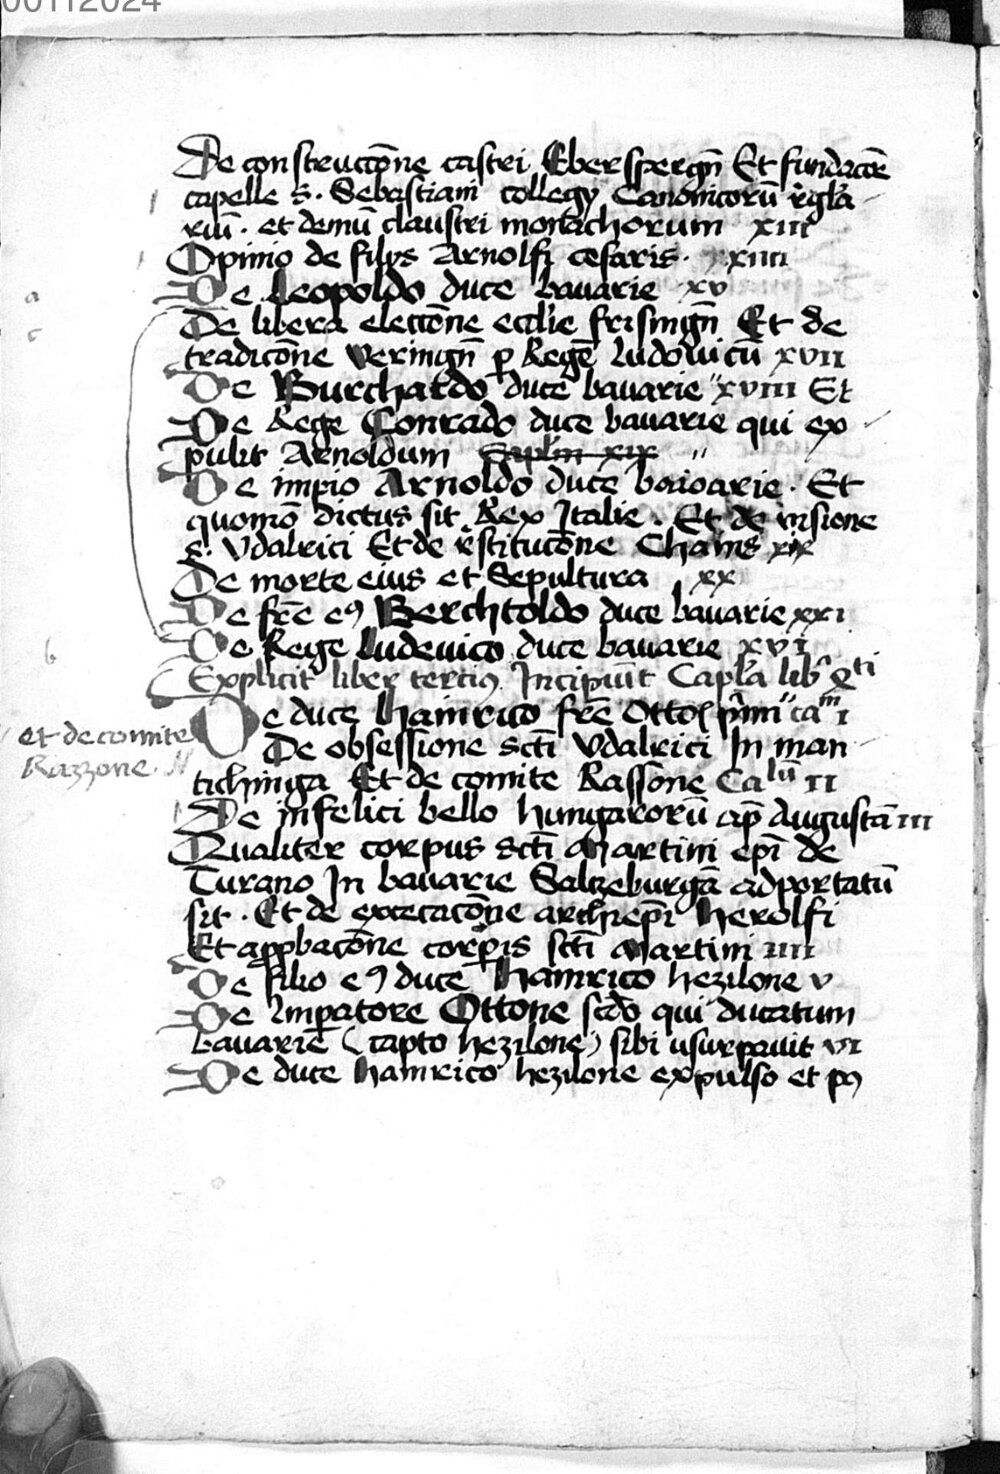 00112024
De construccōne castri Eberspergn̄ Et fundacōe
capelle S. Sebastiani collegy Canonicorū rēgla-
riū. et demū claustri monachorum xiii
Opinio de filys Arnolfi cesaris. xiiii
De Leopoldo duce bauarie xv
De libera eleccōne ecclīe frisingn̄ Et de
tradicōne veringn̄ ꝑ Regē ludouicū xvii
De Burchardo duce bauarie "xviii Et
De Rege Conrado duce bauarie qui ex-
pulit Arnoldum Caplm xix "
De impio Arnoldo duce baioarie. Et
quomō dictus sit Rex Italie. Et de visione
S. Vdalrici Et de rēstitucōne xix
De morte eius et Sepultura xx
De frē eꝰ Berchtoldo duce bauarie xxi
De Rege Ludewico duce bauarie xvi
Explicit liber tertiꝰ Incipiūt Capl̄a lib' qͥti
De duce hainrico frē Otto pīmi " caᵐ i
et de comite
Razzone //
De obsessione Sctī Vdalrici In man-
tichinga Et de comite Rassone Caˡū ii
De infelici bello hungarorū ap̄ Augustā iii
Qualiter corpus Sctī Martini ep̄i de
Turano In bauarie Saltzeburgā adportatū
sit. Et de execacōne archiep̄i herolfi
Et app̄bacōne corp̄is sctī Martini iiii
De filio eꝰ duce hainrico hezilone v
De Imperatore Ottone scdō qui ducatum
bauarie (capto hezilone) sibi usurpauit vi
De duce hainrico hezilone expulso et pꝰ